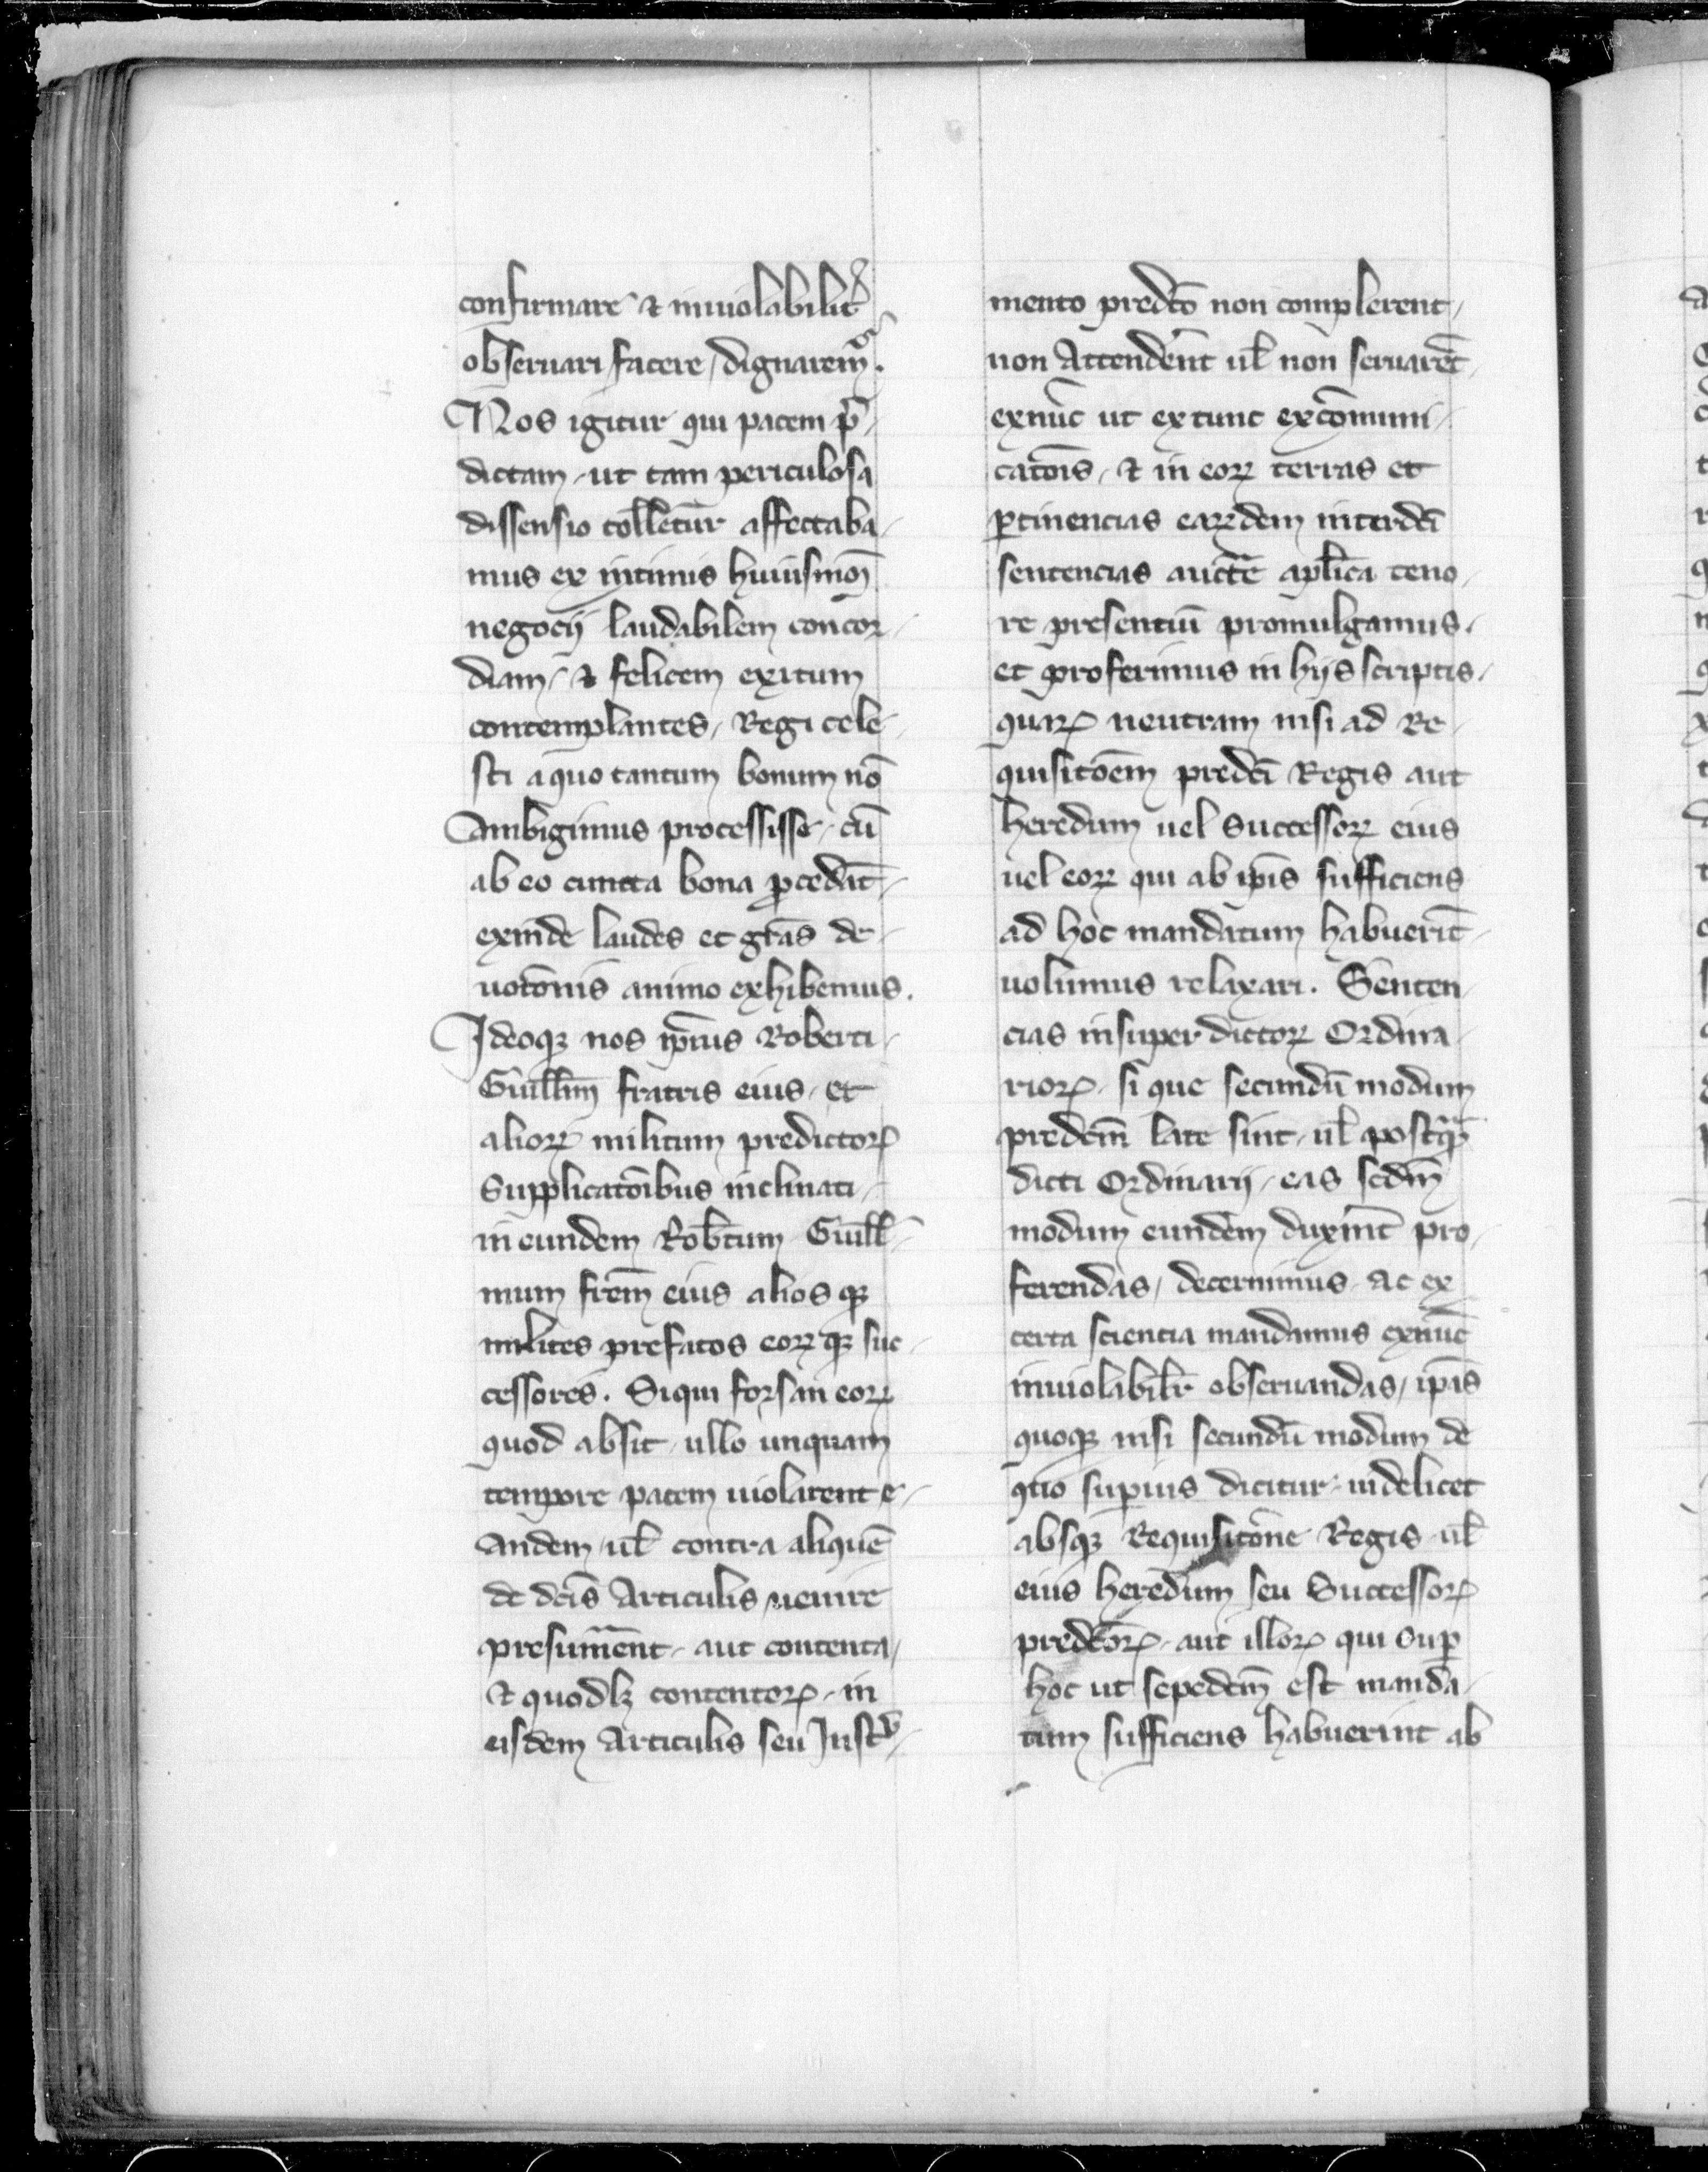 confirmare & inuiolabilit̄
obseruari facere / dignarem᷒.
Nos igitur qui pacem p̄ /
dictam / ut tam periculosa
dissensio tolletur affectaba /
mus ex intimis huiusmōi
negocij laudabilem concor /
diam / & felicem exitum
contemplantes / Regi cele /
sti a quo tantum bonum nō
Ambigimus processisse / cū
ab eo cuncta bona ꝓcedāt /
exinde laudes et gr̄as de /
uotōnis animo exhibemus.
Ideoqꝫ nos ip̄ius Roberti /
Guillm̄i fratris eius / et
alioꝝ militum predictoꝝ
Supplicatōibus inclinati /
in eundem Rob̄tum Guill̄ /
mum fr̄em eius alios qꝫ
milites prefatos eoꝝ qꝫ suc /
cessores. Siqui forsan eoꝝ
quod absit / ullo unquam
tempore pacem uiolarent e /
andem / ul̄ contra aliquē
de dc̄is Articulis / uenire
presum̄ent / aut contenta /
& quodlꝫ contentoꝝ / in
eisdem Articulis seu Instv /
mento predc̄o non complerent /
non Attenderēt ul̄ non seruarēt /
exnūc ut ex tunc excōmuni /
catōis / & in eoꝝ terras et
ꝑtinencias eaꝝdem interdc̄i
sentencias auctē apl̄ica teno /
re presentiū promulgamus /
et proferimus in hijs scriptis /
quaꝝ neutram nisi ad Re /
quisitōem predc̄i Regis aut
heredum uel Successoꝝ eius
uel eoꝝ qui ab ip̄is sufficiens
ad hoc mandatum habuerīt /
uolumus relaxari. Senten /
cias insuper dictoꝝ Ordina /
rioꝝ / si que secundū modum
predc̄m late sint / ul̄ postqᵃꝫ
dicti Ordinarij / eas sc̄dm
modum eundem duxīnt pro /
ferendas / decernimus / ac ex
certa sciencia mandamus exnūc
inuiolabilr̄ obseruandas / ip̄as
quoqꝫ nisi secundū modum de
quo suꝑius dicitur / uidelicet
absqꝫ Requisitōne Regis / ul̄
eius heredum seu Successoꝝ
predc̄oꝝ / aut illoꝝ qui Suꝑ
hoc ut sepedc̄m est manda /
tum sufficiens habuerint ab